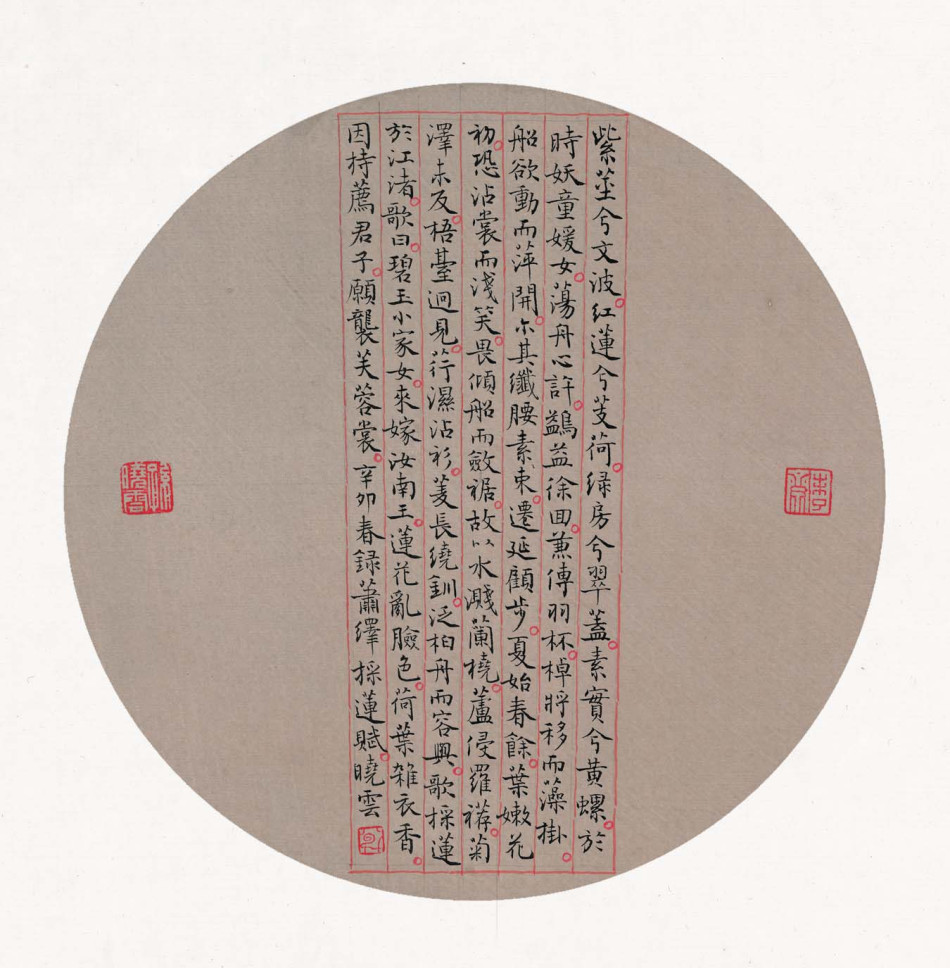 紫莖兮文波紅蓮兮芰荷緑房兮翠蓋素實兮黄螺於
時妖童媛女蕩舟心許鷁益徐回兼傳羽杯棹將移而藻掛
船欲動而萍開尔其纖腰素束遷延顧步夏始春餘葉嫩花
初恐沾裳而淺笑畏傾船而斂裾故以水濺蘭橈蘆侵羅𧞣菊
澤未反梧臺迥見荇濕沾衫菱長繞釧泛柏舟而容興歌採蓮
於江渚歌曰碧玉小家女來嫁汝南王蓮花亂臉色荷葉雜衣香
因持薦君子願襲芙蓉裳辛卯春録蕭繹採蓮賦曉雲